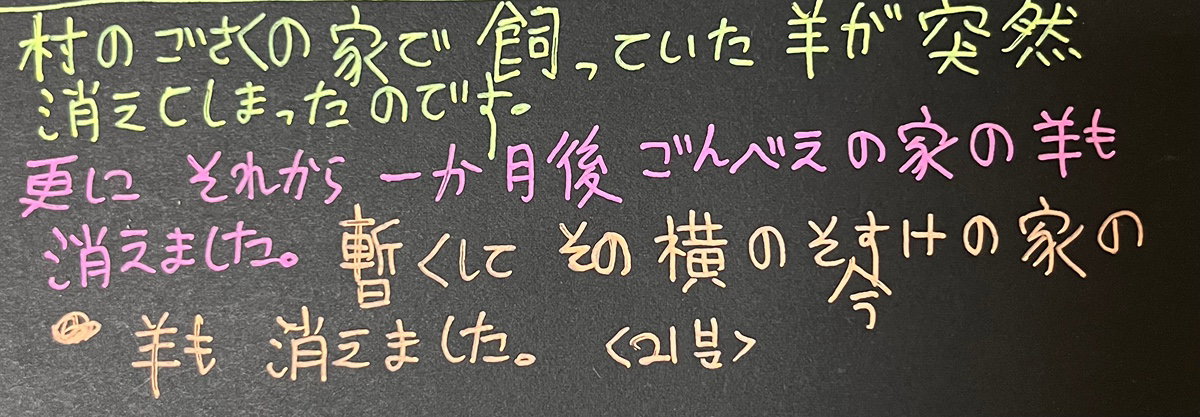 村のごさくの家で飼っていた羊が突然
消えてしまったのです。
更に それから 一か月後 ごんべえの家の羊も
消えました。暫くして その横のそすけの家の
今
羊も 消えました。 <21분>